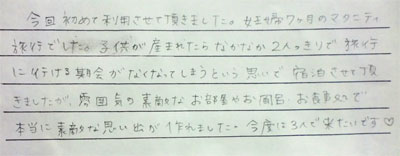 今回初めて利用させて頂きました。妊婦7ヶ月のマタニティ
旅行でした。子供が産まれたらなかなか2人っきりで旅行
に行ける機会がなくなってしまうという思いで宿泊させて頂
きましたが、雰囲気の素敵なお部屋やお風呂、お食事で
本当に素敵な思い出が作れました。今度は3人で来たいです♡